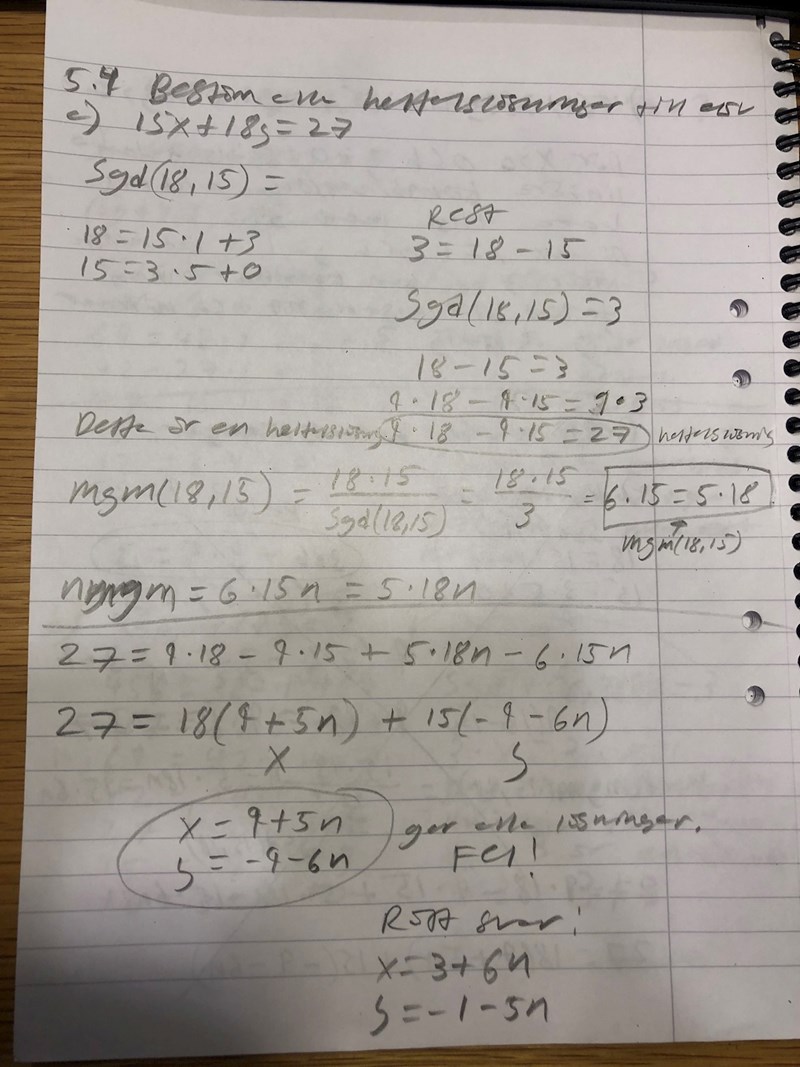 5.4 Bestäm alla heltalslösningar till ekv
c) 15x+18y=27
Sgd(18,15) =
REST
18=15·1+3
3=18-15
15=3·5+0
Sgd(18,15)=3
18-15=3
9·18-9·15=9·3
Detta är en heltalslösning 9·18-9·15=27 heltalslösning
mgm(18,15) = 18·15/Sgd(18,15) = 18·15/3 = 6·15=5·18
mgm(18,15)
nmgm = 6·15n = 5·18n
27=9·18-9·15+5·18n-6·15n
27=18(9+5n)+15(-9-6n)
x y
x=9+5n ger alla lösningar.
y=-9-6n FEL!
Rätt svar:
x=3+6n
y=-1-5n